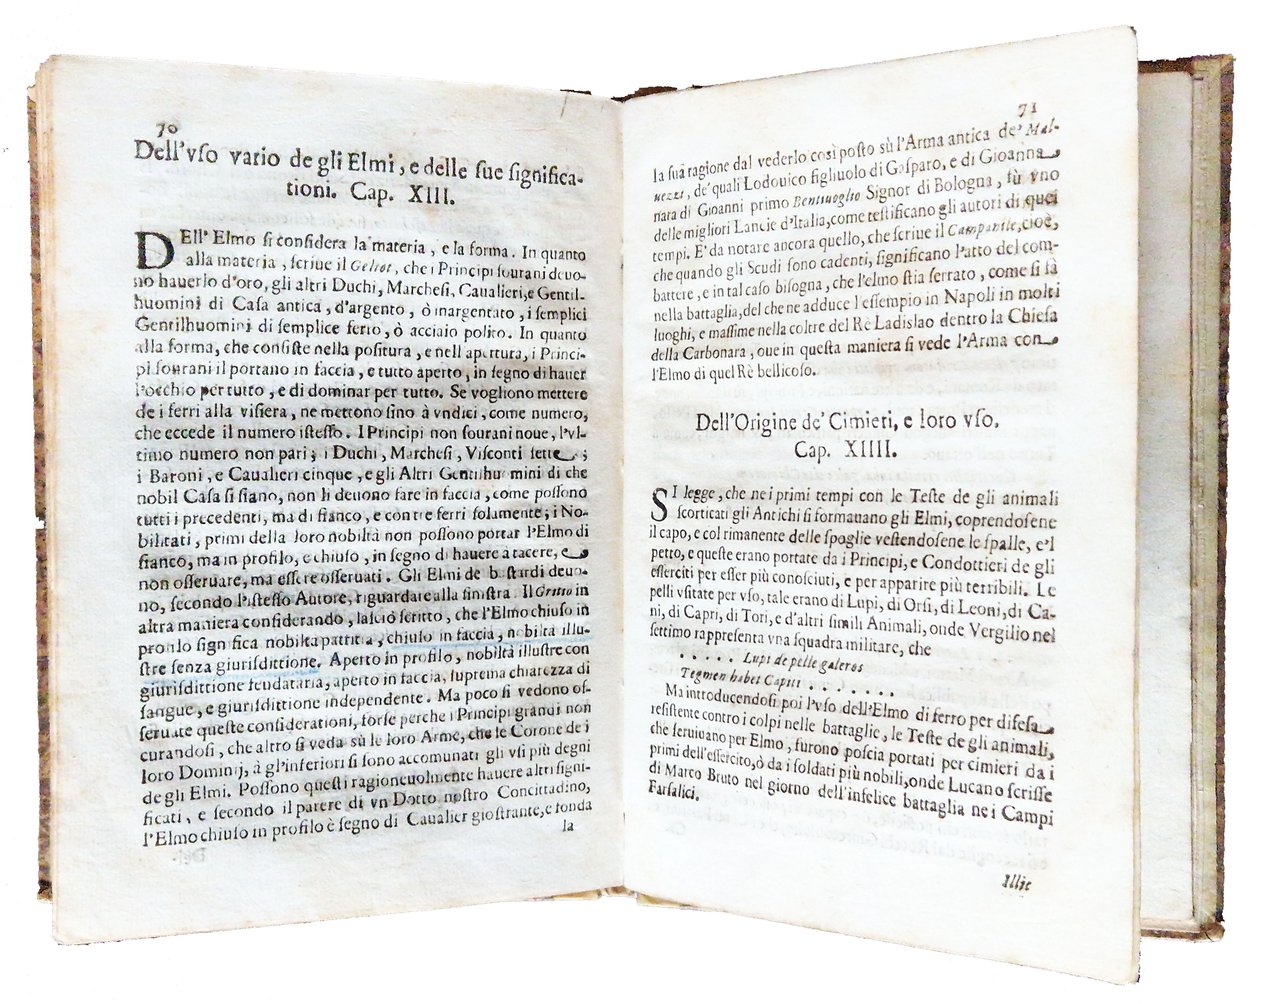 70
Dell'vſo vario de gli Elmi, e delle ſue ſignifica-
tioni. Cap. XIII.
DEll' Elmo ſi conſidera la materia, e la forma. In quanto
alla materia, ſcriue il Geliot, che i Principi ſourani deuo-
no hauerlo d'oro, gli altri Duchi, Marcheſi, Caualieri, e Gentil-
huomini di Caſa antica, d'argento, ò inargentato, i ſemplici
Gentilhuomini di ſemplice ferro, ò acciaio polito. In quanto
alla forma, che conſiſte nella poſitura, e nell apertura, i Princi-
pi ſourani il portano in faccia, e tutto aperto, in ſegno di hauer
l'occhio per tutto, e di dominar per tutto. Se vogliono mettere
de i ferri alla viſiera, ne mettono ſino à vndici, come numero,
che eccede il numero iſteſſo. I Principi non ſourani noue, l'vl-
timo numero non pari; i Duchi, Marcheſi, Viſconti ſette;
i Baroni, e Caualieri cinque, e gli Altri Gentilhuomini di che
nobil Caſa ſi ſiano, non li deuono fare in faccia, come poſſono
tutti i precedenti, ma di fianco, e con tre ferri ſolamente; i No-
bilitati, primi della loro nobiltà non poſſono portar l'Elmo di
fianco, ma in profilo, e chiuſo, in ſegno di hauere à tacere, e
non oſſeruare, ma eſſere oſſeruati. Gli Elmi de baſtardi deuo-
no, ſecondo l'iſteſſo Autore, riguardare alla ſiniſtra. Il Gritio in
altra maniera conſiderando, laſciò ſcritto, che l'Elmo chiuſo in
profilo ſignifica nobiltà patritia, chiuſo in faccia, nobiltà illu-
ſtre ſenza giuriſdittione. Aperto in profilo, nobiltà illuſtre con
giuriſdittione feudataria, aperto in faccia, ſuprema chiarezza di
ſangue, e giuriſdittione independente. Ma poco ſi vedono oſ-
ſeruate queſte conſiderationi, forſe perche i Principi grandi non
curandoſi, che altro ſi veda sù le loro Arme, che le Corone de i
loro Dominij, à gl'inferiori ſi ſono accomunati gli vſi più degni
de gli Elmi. Poſſono queſti ragioneuolmente hauere altri ſigni-
ficati, e ſecondo il parere di vn Dotto noſtro Concittadino,
l'Elmo chiuſo in profilo è ſegno di Caualier gioſtrante, e fonda
la
71
la ſua ragione dal vederlo così poſto sù l'Arma antica de' Mal-
uezzi, de' quali Lodouico figliuolo di Gaſparo, e di Gioanna
nata di Gioanni primo Bentiuoglio Signor di Bologna, fù vno
delle migliori Lancie d'Italia, come teſtificano gli autori di quei
tempi. E' da notare ancora quello, che ſcriue il Campanile, cioè,
che quando gli Scudi ſono cadenti, ſignificano l'atto del com-
battere, e in tal caſo biſogna, che l'elmo ſtia ſerrato, come ſi fà
nella battaglia, del che ne adduce l'eſſempio in Napoli in molti
luoghi, e maſſime nella coltre del Rè Ladislao dentro la Chieſa
della Carbonara, oue in queſta maniera ſi vede l'Arma con
l'Elmo di quel Rè bellicoſo.
Dell'Origine de' Cimieri, e loro vſo.
Cap. XIIII.
SI legge, che ne i primi tempi con le Teſte de gli animali
ſcorticati gli Antichi ſi formauano gli Elmi, coprendoſene
il capo, e col rimanente delle ſpoglie veſtendoſene le ſpalle, e'l
petto, e queſte erano portate da i Principi, e Condottieri de gli
eſſerciti per eſſer più conoſciuti, e per apparire più terribili. Le
pelli vſitate per vſo, tale erano di Lupi, di Orſi, di Leoni, di Ca-
ni, di Capri, di Tori, e d'altri ſimili Animali, onde Vergilio nel
ſettimo rappreſenta vna ſquadra militare, che
. . . . . Lupi de pelle galeros
Tegmen habet Caput . . . . . . .
Ma introducendoſi poi l'vſo dell'Elmo di ferro per difeſa
reſiſtente contro i colpi nelle battaglie, le Teſte de gli animali,
che ſeruiuano per Elmo, furono poſcia portati per cimieri da i
primi dell'eſſercito, ò da i ſoldati più nobili, onde Lucano ſcriſſe
di Marco Bruto nel giorno dell'infelice battaglia ne i Campi
Farſalici.
Illic